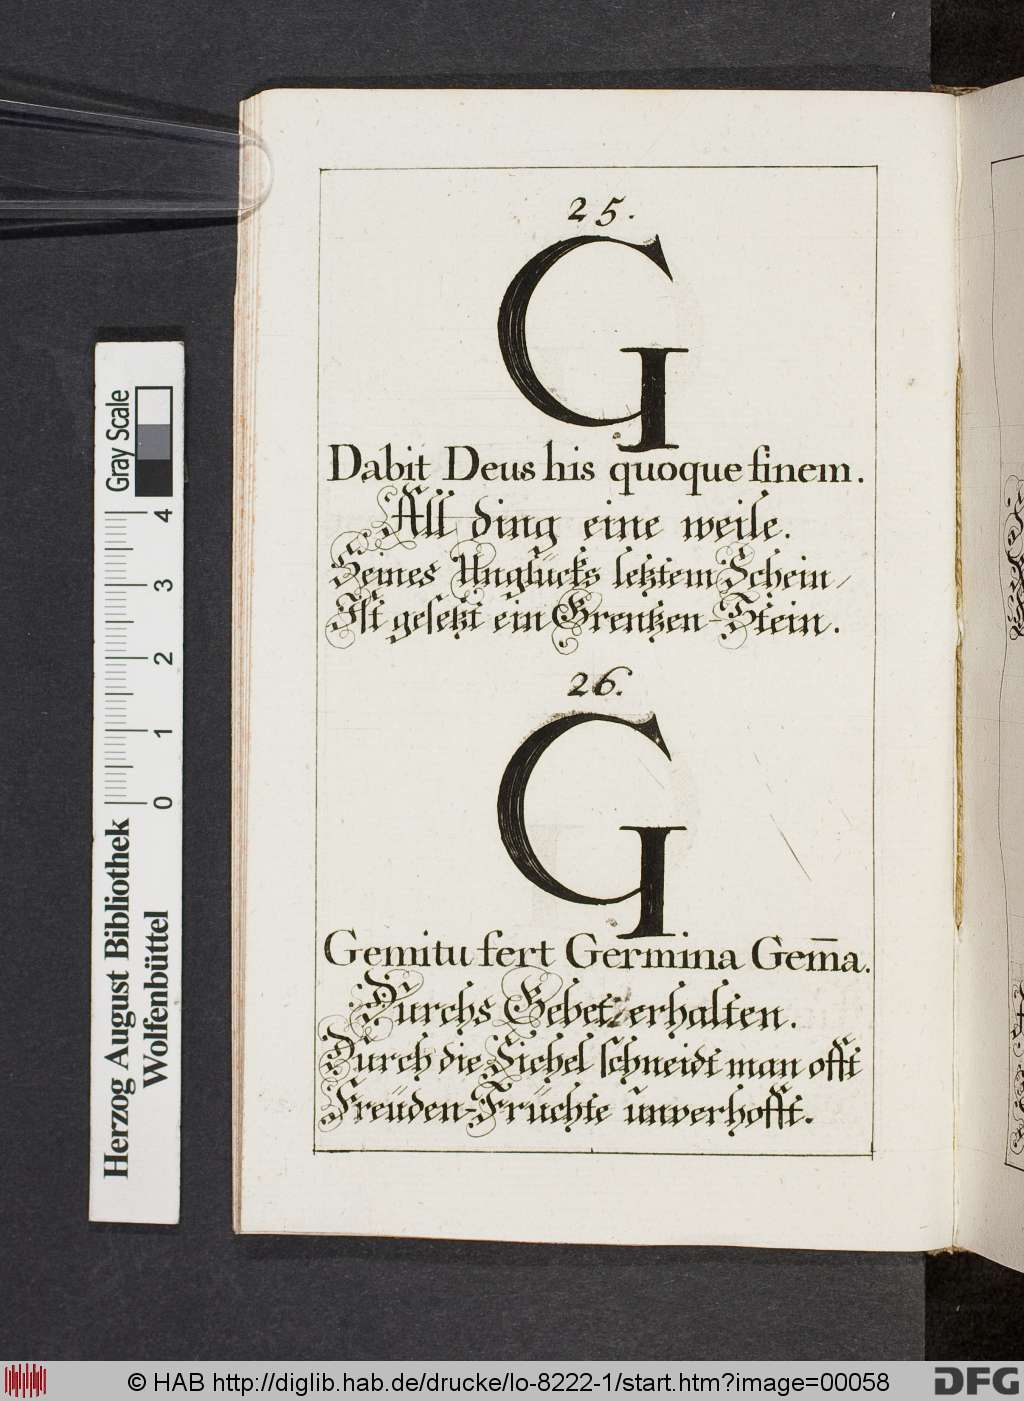 25.
G
Dabit Deus his quoque finem.
All ding eine weile.
Seines Unglücks letztem Schein /
Ist gesetzt ein Grentzen-Stein.
26.
G
Gemitu fert Germina Gem̄a.
Durchs Gebet erhalten.
Durch die Sichel schneidt man offt
Freüden-Früchte unverhofft.
Gray Scale
4
3
2
1
0
Herzog August Bibliothek
Wolfenbüttel
© HAB http://diglib.hab.de/drucke/lo-8222-1/start.htm?image=00058
DFG